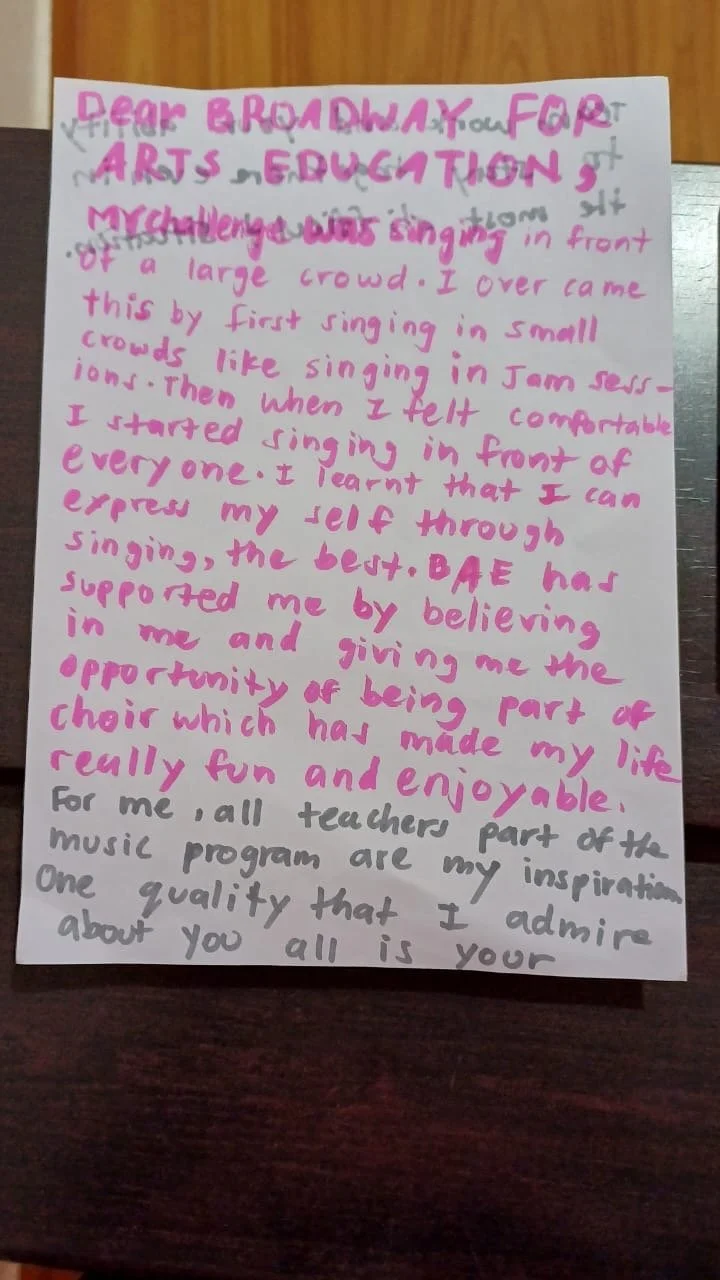 Dear BROADWAY FOR
ARTS EDUCATION,
My challenge was singing in front
of a large crowd. I over came
this by first singing in small
crowds like singing in Jam sess-
ions. Then when I felt comfortable
I started singing in front of
every one. I learnt that I can
express my self through
singing, the best. BAE has
supported me by believing
in me and giving me the
opportunity of being part of
choir which has made my life
really fun and enjoyable.
For me, all teachers part of the
music program are my inspiration
One quality that I admire
about you all is your